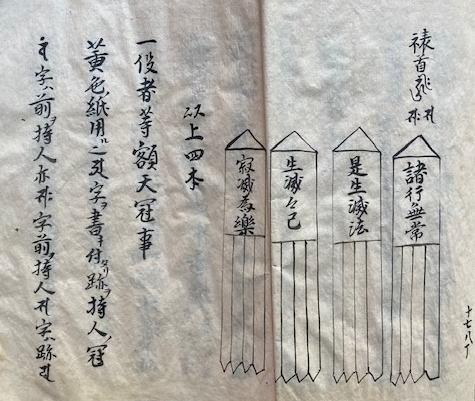 諸行無常
是生滅法
生滅々已
寂滅為樂
以上四本
一役者等額天冠事
黄色紙用之 字ヲ書キ付 跡ヲ持人ノ冠
字ハ前ヲ持人 亦 字前ヲ持人 字ハ跡
十七八丁